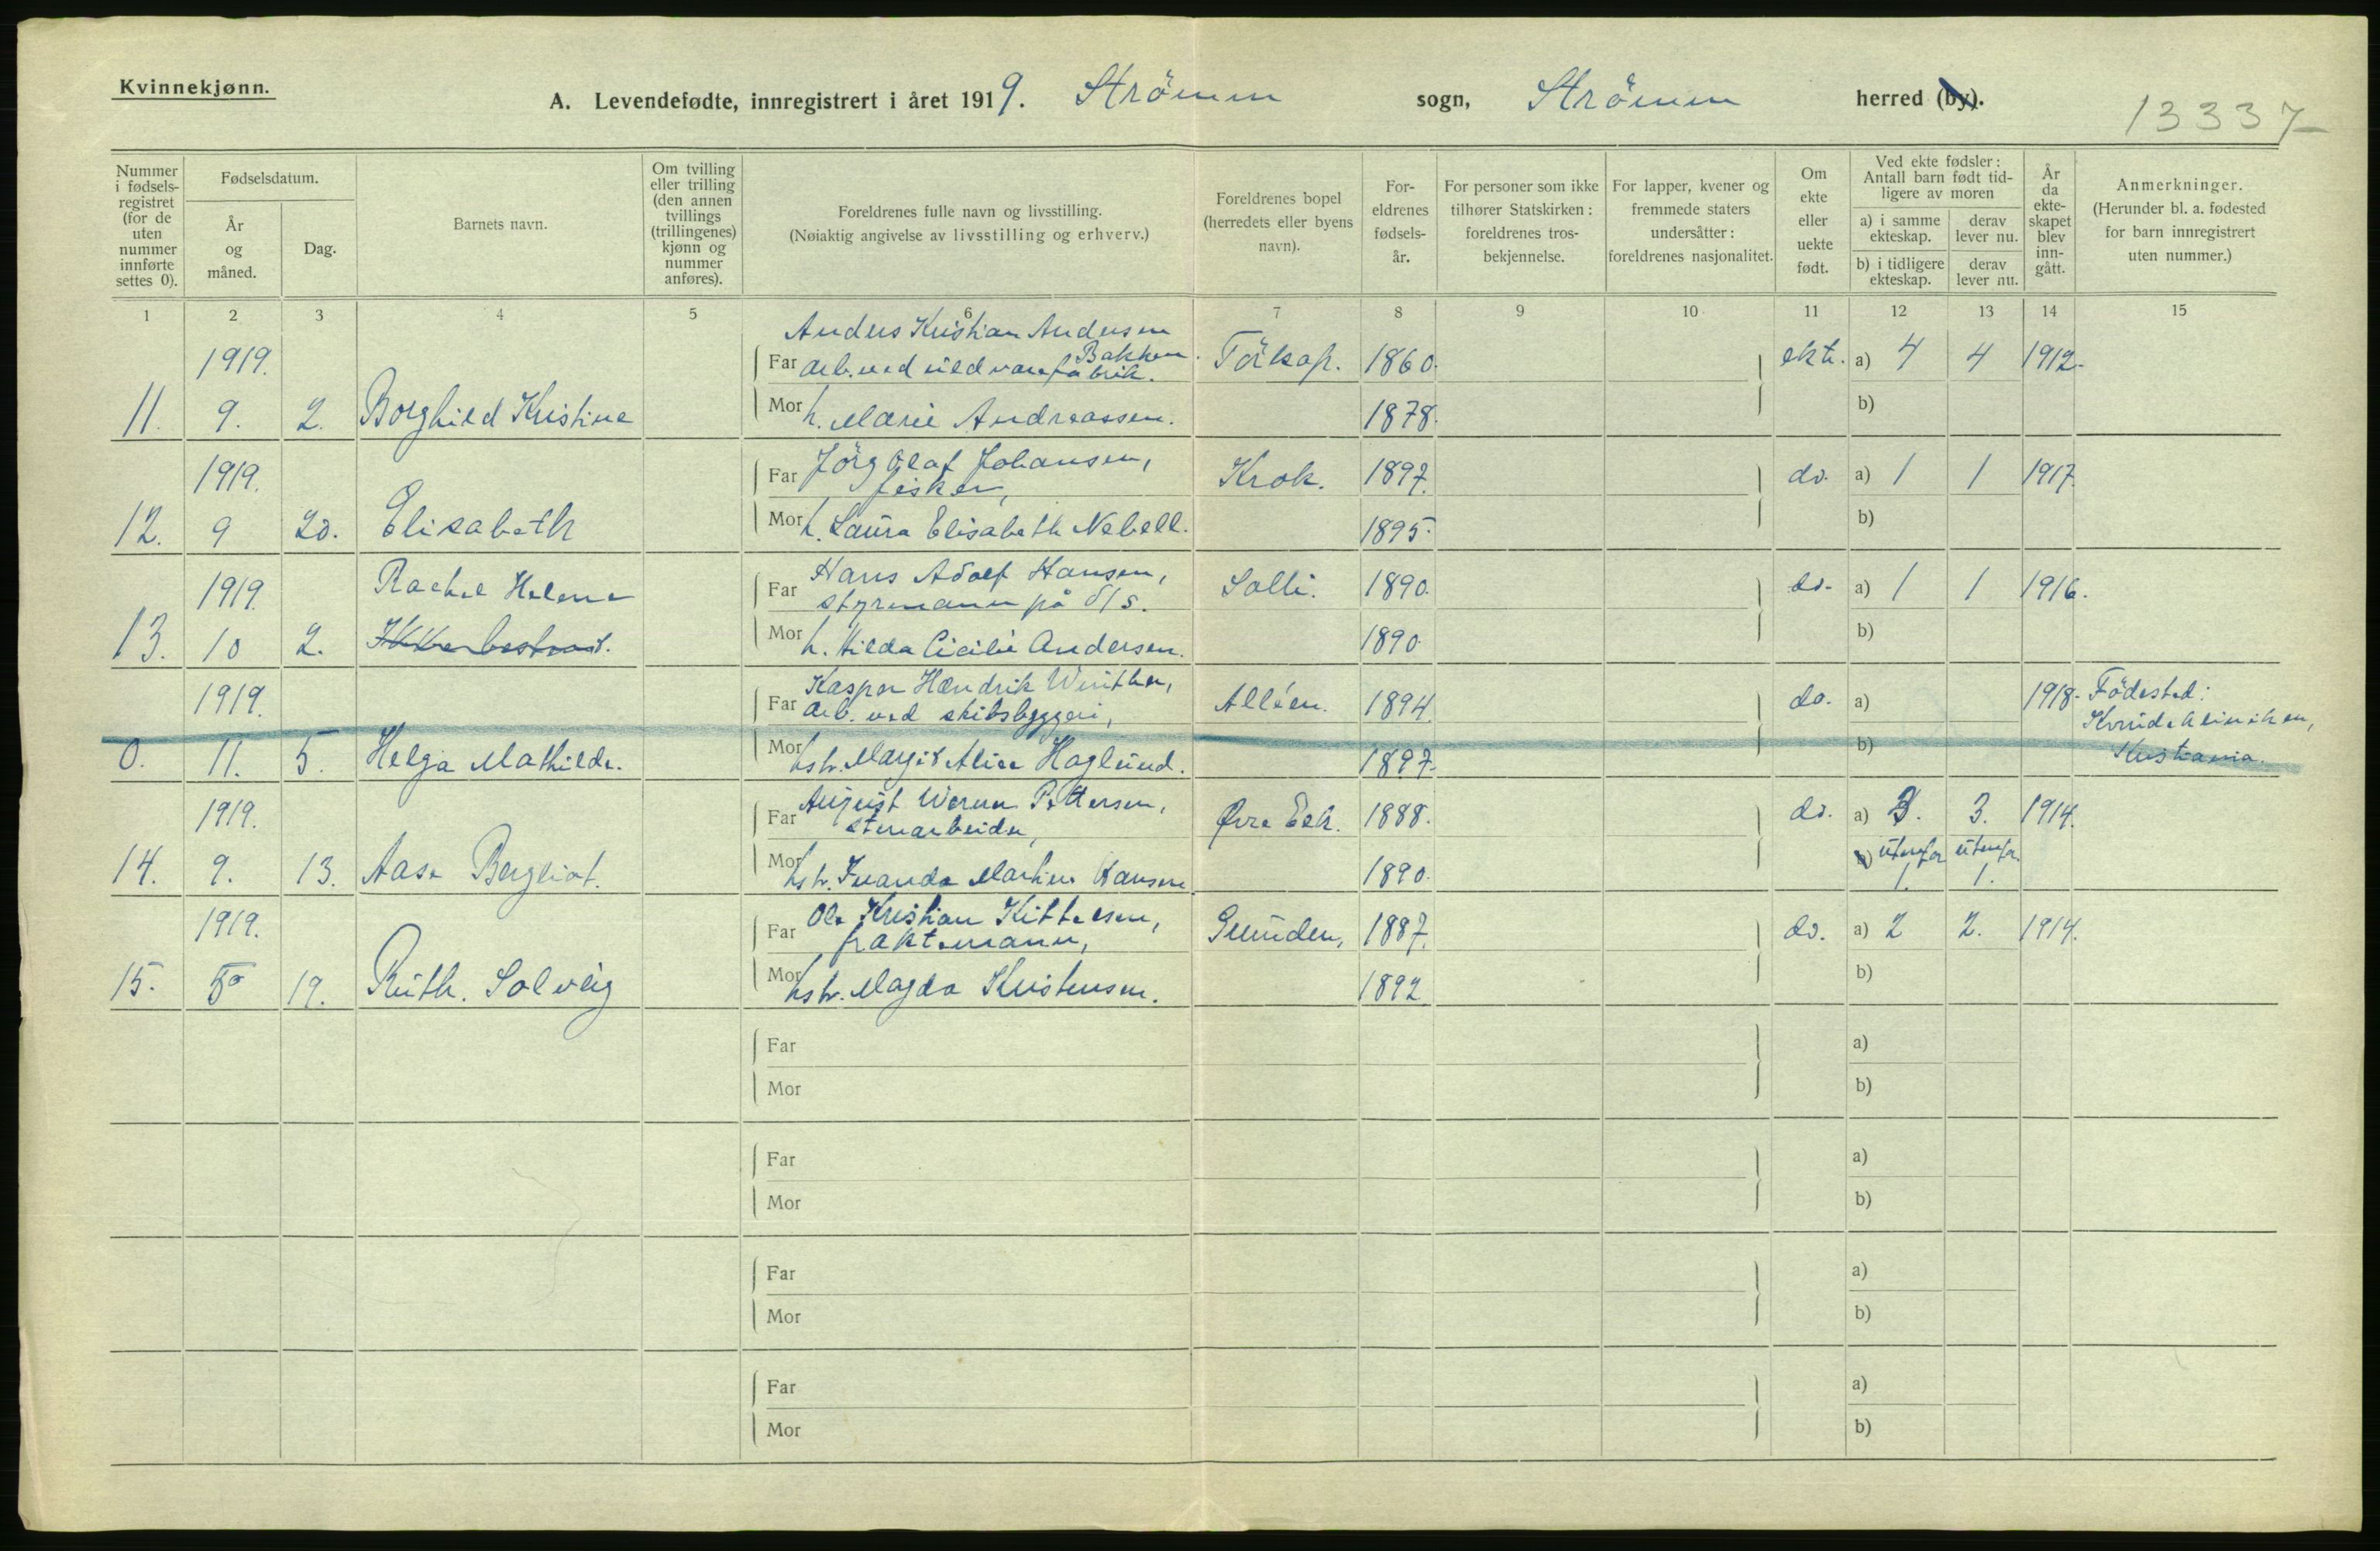 Kvinnekjønn.
A. Levendefødte, innregistrert i året 1919. Strömm sogn, Strömm herred (by).
13337
Nummer i fødsels-registret (for de uten nummer innførte settes 0).
Fødselsdatum.
År og måned.
Dag.
Barnets navn.
Om tvilling eller trilling (den annen tvillings (trillingenes) kjønn og nummer anføres).
Foreldrenes fulle navn og livsstilling.
(Nøiaktig angivelse av livsstilling og erhverv.)
Foreldrenes bopel (herredets eller byens navn).
For-eldrenes fødsels-år.
For personer som ikke tilhører Statskirken: foreldrenes tros-bekjennelse.
For lapper, kvener og fremmede staters undersåtter: foreldrenes nasjonalitet.
Om ekte eller uekte født.
Ved ekte fødsler: Antall barn født tid-ligere av moren
a) i samme ekteskap.
derav lever nu.
b) i tidligere ekteskap.
derav lever nu.
År da ekte-skapet blev inn-gått.
Anmerkninger.
(Herunder bl. a. fødested for barn innregistrert uten nummer.)
1 2 3 4 5 6 7 8 9 10 11 12 13 14 15
Anders Kristian Andersen
1919. Far Bakken. Törkop. 1860. ekte. a) 4 4 1912.
arb. ved
11. 9. 2. Borghild Kristine Mor h. Marie Andreassen. 1878. b)
1919. Far Jörg Olaf Johansen, Krok. 1897. do. a) 1 1 1917.
fisker,
12. 9 20. Elisabeth Mor h. Laura Elisabeth Nebell. 1895. b)
1919. Rachel Helene Far Hans Adolf Hansen, Solli. 1890. do. a) 1 1 1916.
styrmann på d/s.
13. 10 2. Mor h. Hilda Cicilie Andersen. 1890. b)
1919. Far Kaspar Hendrik Winther, Alléen. 1894. do. a) 1918. Födested:
arb. ved skibsbyggeri, Kvindeklinikken,
0. 11. 5. Helga Mathilde. Mor hstr. Margit Alice Haglund. 1897. b) Kristiania.
1919. Far August Werner Pettersen, Øvre Eek. 1888. do. a) 3. 3. 1914.
stenarbeider,
14. 9. 13. Aase Bergliot. Mor hstr. Martine Hansen 1890. b) utenfor 1. utenfor 1.
1919. Far Ole Kristian Kittelsen, 1887. do. a) 2 2. 1914.
fraktemann,
15. 10 19. Ruth. Solveig Mor hstr. Magda Kristensen. 1892. b)
Far a)
Mor b)
Far a)
Mor b)
Far a)
Mor b)
Far a)
Mor b)